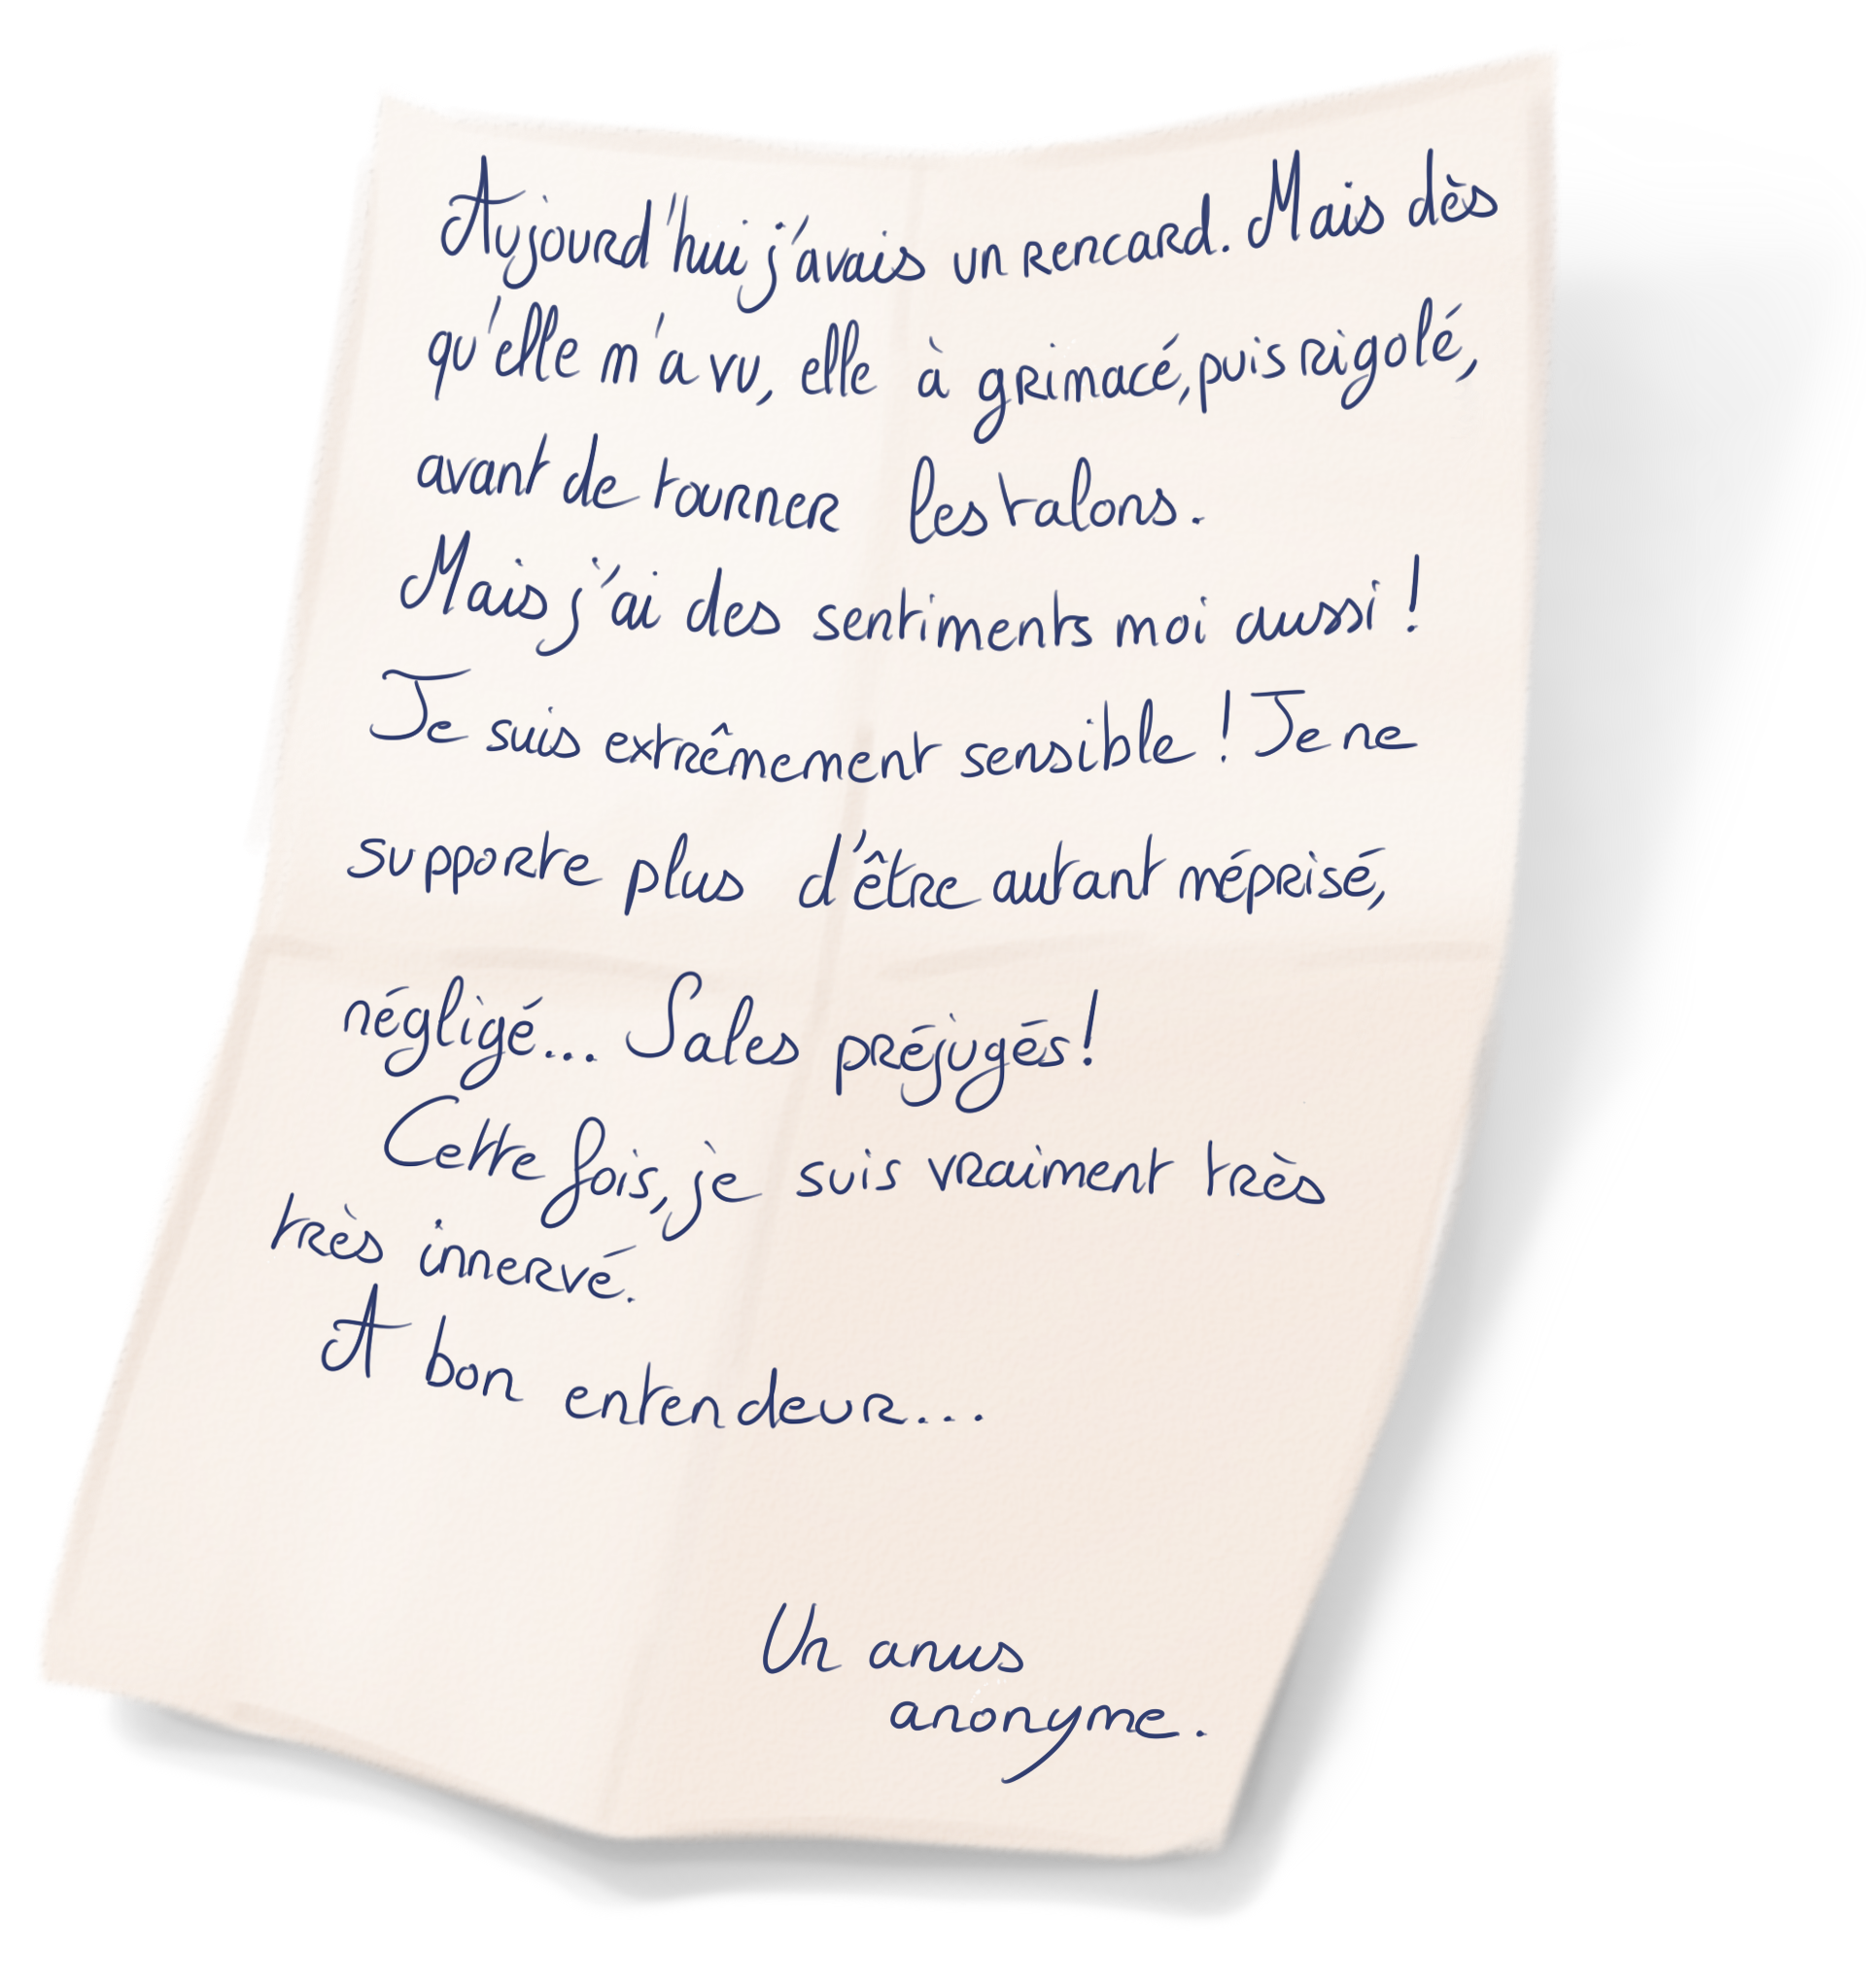 Aujourd'hui j'avais un rencard. Mais dès
qu'elle m'a vu, elle à grimacé, puis rigolé,
avant de tourner les talons.
Mais j'ai des sentiments moi aussi !
Je suis extrêmement sensible ! Je ne
supporte plus d'être autant méprisé,
négligé... Sales préjugés !
Cette fois, je suis vraiment très
très innervé.
A bon entendeur...
Un anus
anonyme.